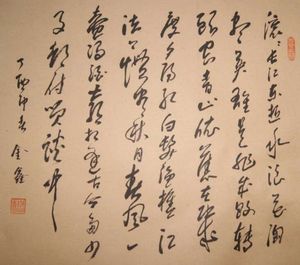 滚〻长江东逝水浪花淘
尽英雄是非成败转
头空青山依旧在几
度夕阳红白发渔樵江
渚上惯看秋月春风一
壶浊酒喜相逢古今多少
事都付笑谈中
丁酉仲春 金鑫